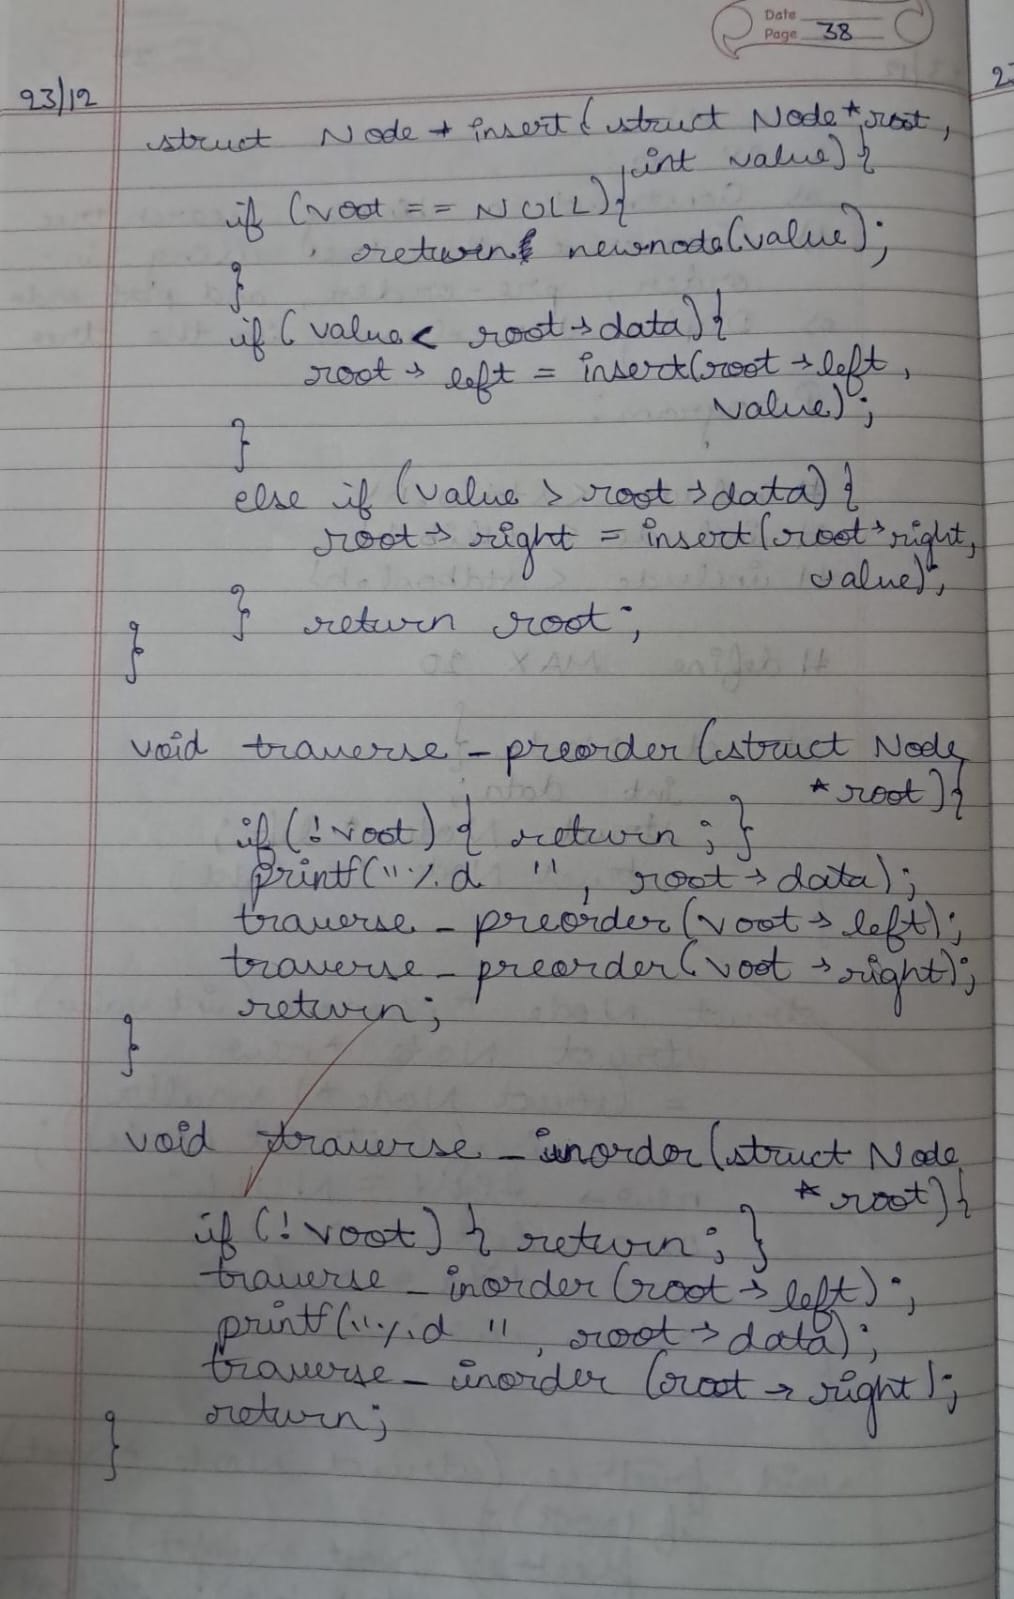 Date
Page 38
23/12
struct Node * insert (struct Node *root,
int value) {
if (root == NULL) {
return newnode(value);
}
if (value < root → data) {
root → left = insert(root → left,
value);
}
else if (value > root → data) {
root → right = insert(root → right,
value);
} return root;
}
void traverse_preorder(struct Node
* root) {
if (!root) { return; }
printf("%d ", root → data);
traverse_preorder(root → left);
traverse_preorder(root → right);
return;
}
void traverse_inorder(struct Node
* root) {
if (!root) { return; }
traverse_inorder(root → left);
printf("%d ", root → data);
traverse_inorder (root → right);
return;
}